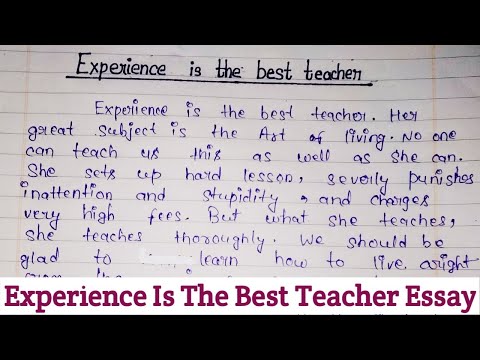 Experience is the best teacher
Experience is the best teacher. Her
great subject is the Art of living. No one
can teach us this as well as she can.
She sets up hard lesson, severly punishes
inattention and stupidity, and charges
very high fees. But what she teaches,
she teaches thoroughly. We should be
glad to learn how to live aright
Experience Is The Best Teacher Essay